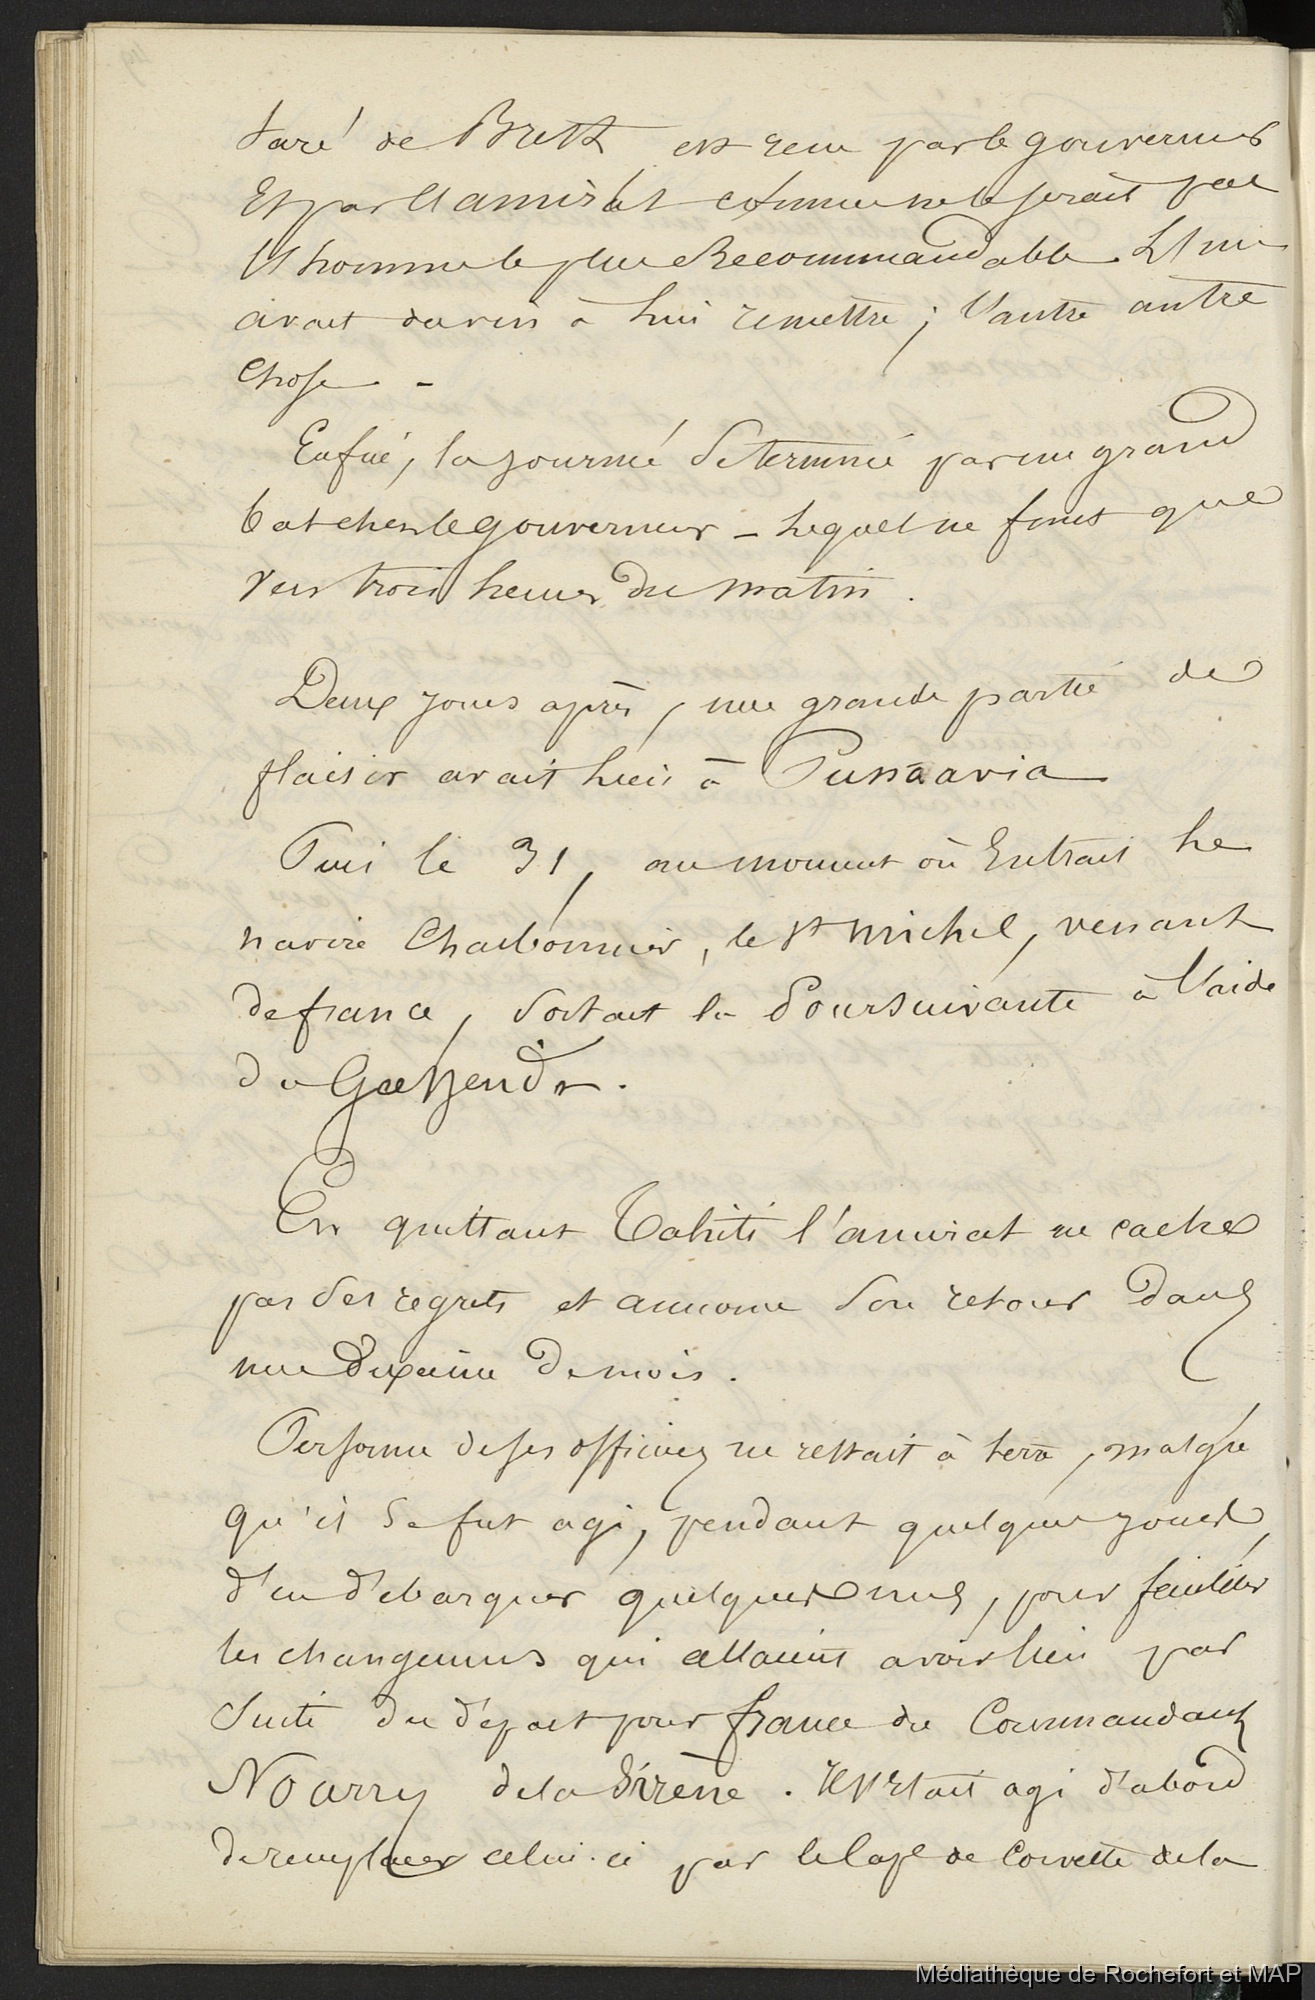 taré de Brett est reçu par le gouverneur
Et par l'amiral comme ne le serait pas
l'homme le plus Recommandable. L'un
avait du vin à lui remettre ; l'autre autre
chose -
Enfin, la journée se termine par un grand
bal chez le gouverneur - lequel ne finit que
vers trois heures du matin.
Deux jours après, une grande partie de
plaisir avait lieu à Punaavia
Puis le 31, au moment où Entrait le
navire Charbonnier, le St Michel, venant
de france, Sortait la Poursuivante à l'aide
du Gassendi.
En quittant Tahiti l'amiral ne cache
pas ses regrets et annonce son retour dans
une dixaine de mois.
Personne de ses officiers ne restait à terre, malgré
qu'il se fut agi, pendant quelques jours,
d'en débarquer quelques uns, pour faciliter
les changemens qui allaient avoir lieu par
Suite du départ pour france du Commandant
Nourry de la Sirène. Il s'était agi d'abord
de remplacer celui-ci par le Cape de Corvette de la
Médiathèque de Rochefort et MAP